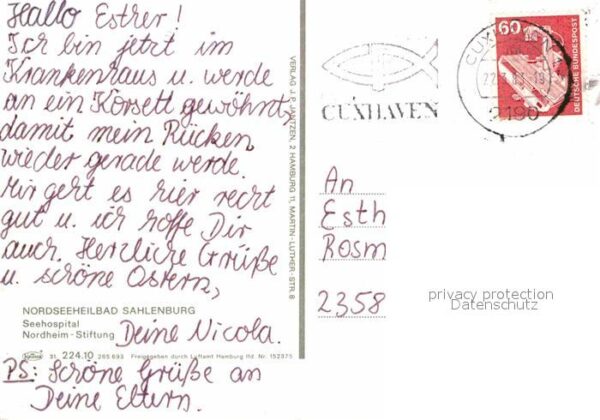 Hallo Esther!
Ich bin jetzt im
Krankenhaus u. werde
an ein Korsett gewöhnt,
damit mein Rücken
wieder gerade werde.
Mir geht es hier recht
gut u. ich hoffe Dir
auch. Herzliche Grüße
u. schöne Ostern,
NORDSEEHEILBAD SAHLENBURG
Seehospital
Nordheim-Stiftung
Deine Nicola.
31 224.10 265 693 Freigegeben durch Luftamt Hamburg lfd. Nr. 152375
PS: Schöne Grüße an
Deine Eltern.
VERLAG J. P. JANTZEN, 2 HAMBURG 11, MARTIN-LUTHER-STR. 8
CUXHAVEN
2190
60
DEUTSCHE BUNDESPOST
An
Esth
Rosm
2358
privacy protection
Datenschutz